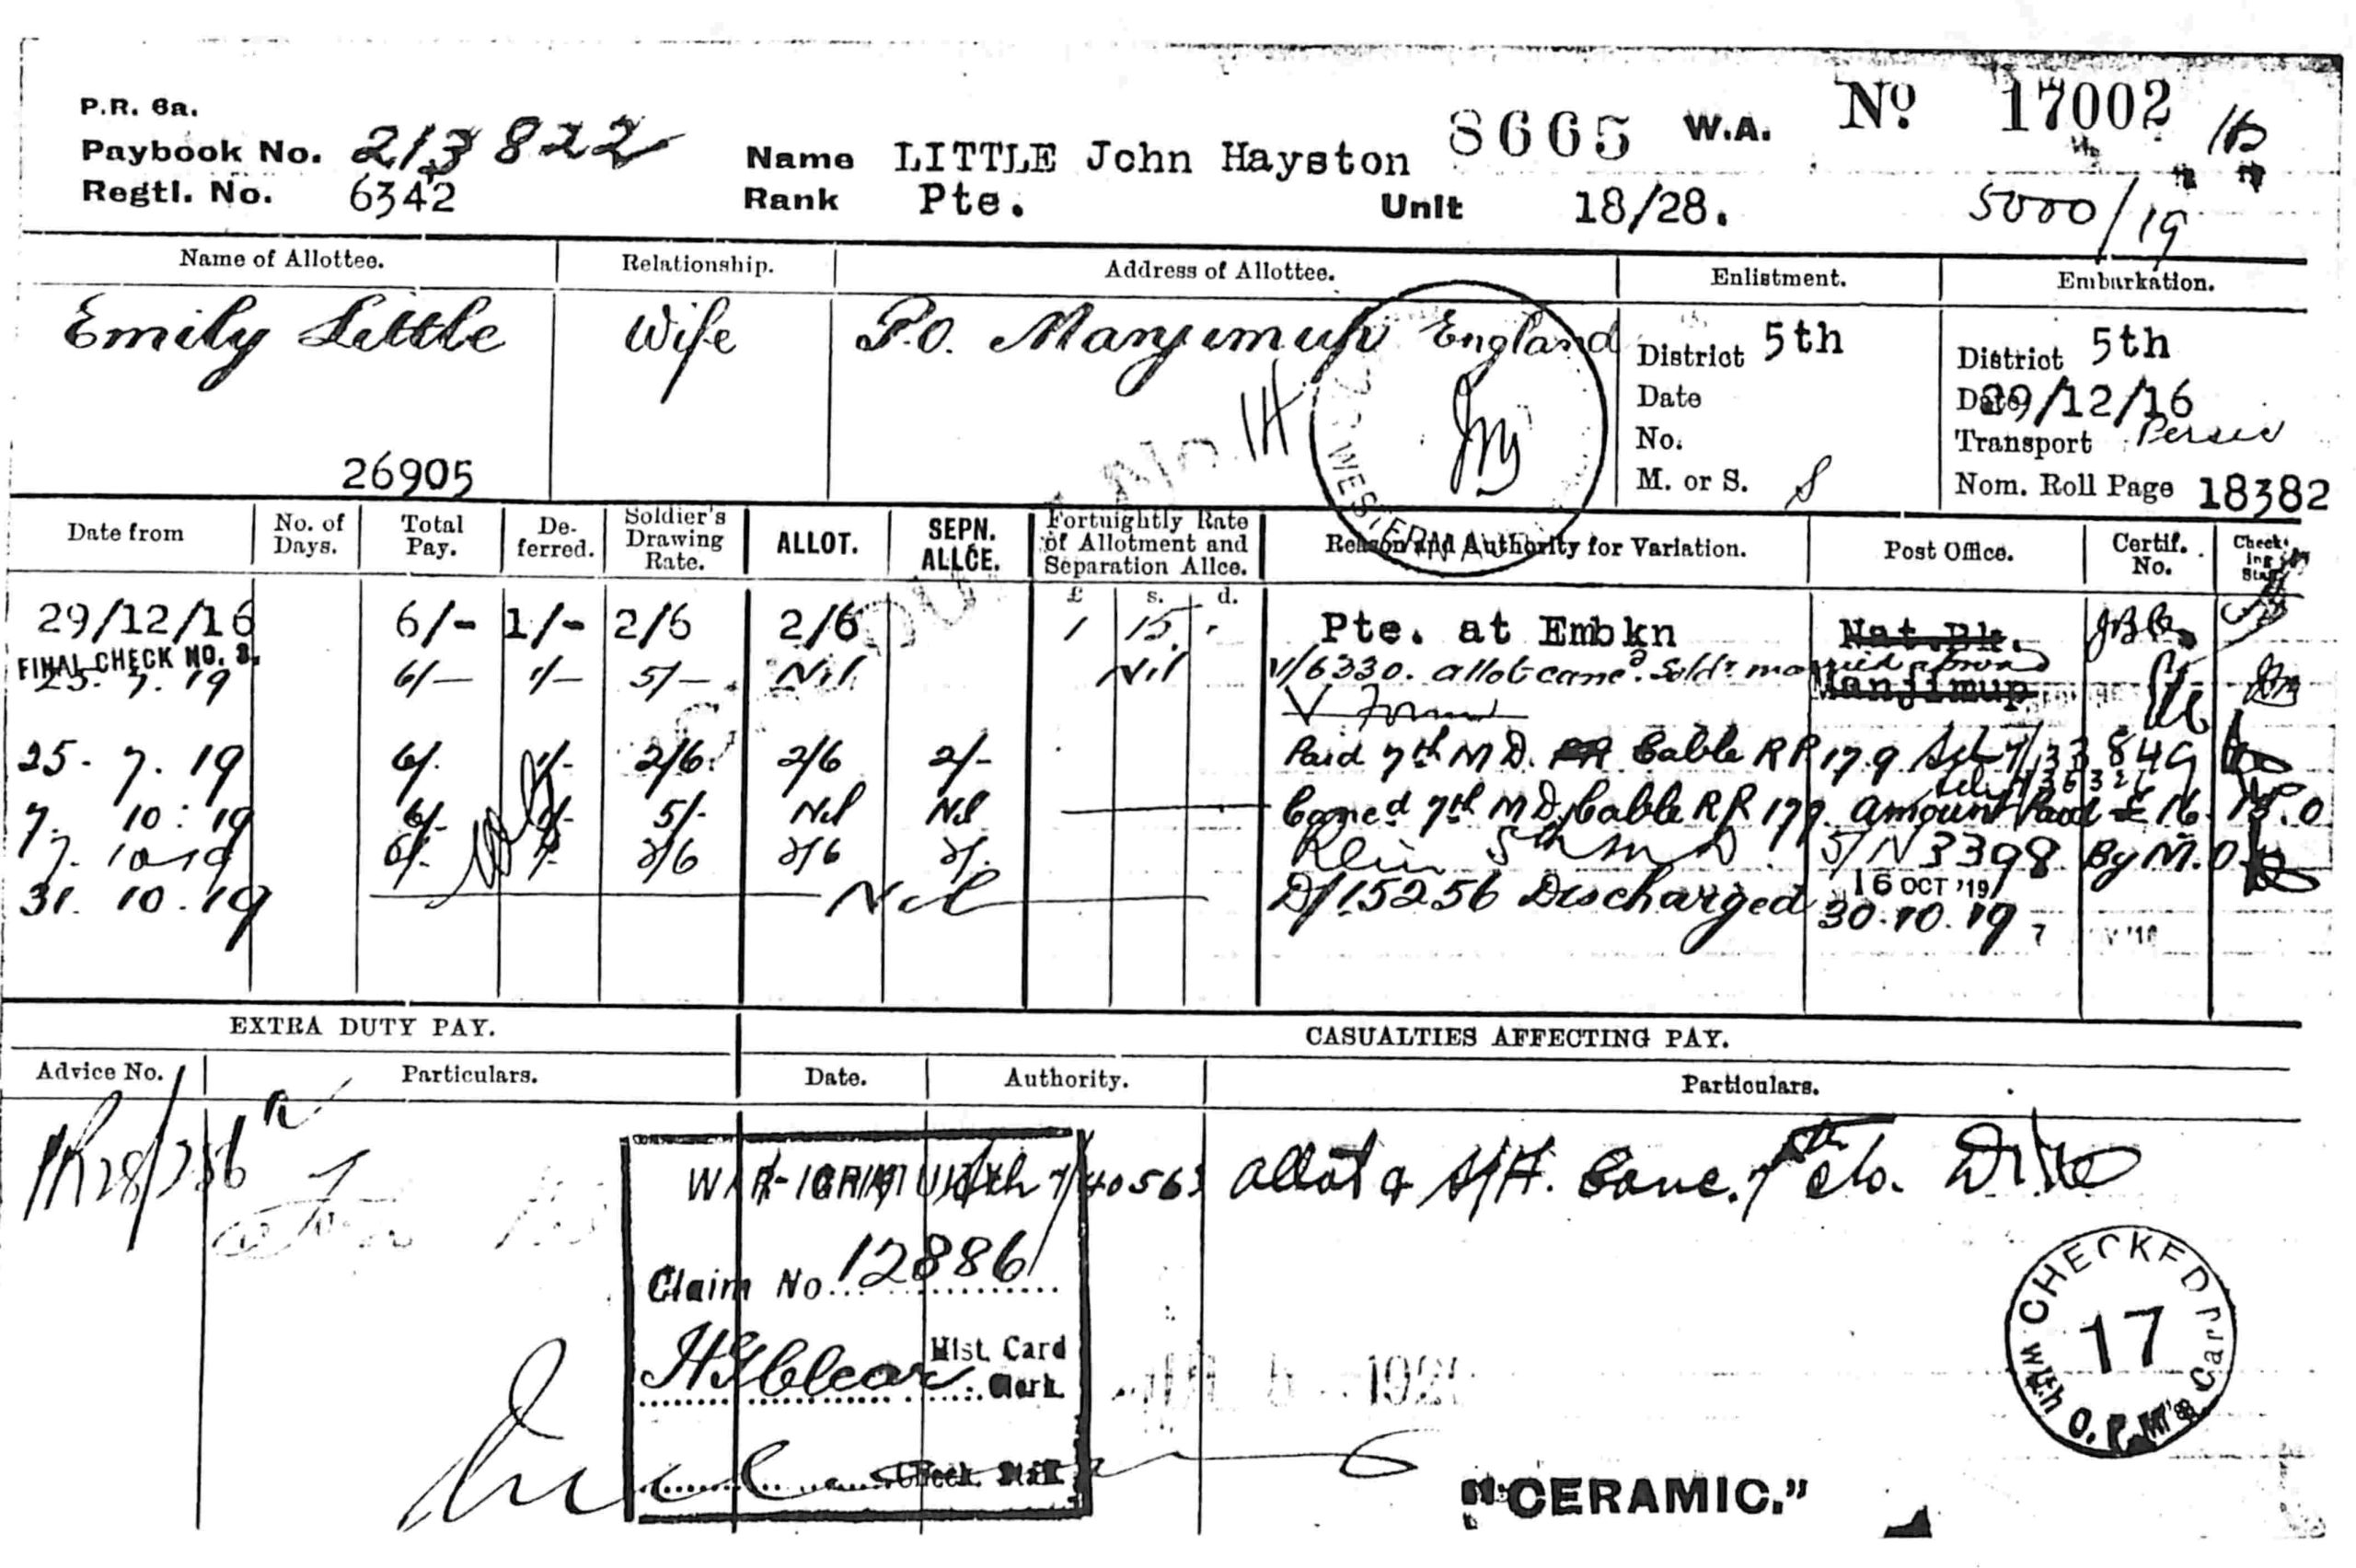 P.R. 6a.
Paybook No. 213822
Regtl. No. 6342
Name LITTLE John Hayston 8665 W.A. No 17002
Rank Pte. Unit 18/28. 5000/19
Name of Allottee. Relationship. Address of Allottee. Enlistment. Embarkation.
Emily Little Wife P.O. Manjimup England
District 5th District 5th
Date Date 29/12/16
No. Transport Persic
26905 M. or S. S Nom. Roll Page 18382
WESTERN
Date from No. of Days. Total Pay. Deferred. Soldier's Drawing Rate. ALLOT. SEPN. ALLCE. Fortnightly Rate of Allotment and Separation Allce. Reason and Authority for Variation. Post Office. Certif. No. Checking
£ s. d.
29/12/16 6/- 1/- 2/6 2/6 1 15 Pte. at Embkn Nat. Bk.
FINAL CHECK NO. 3.
25. 7. 19 6/- 1/- 5/- Nil Nil V/6330. allot canc'd. Sold'r married abroad Manjimup
V Form
25. 7. 19 6/. 1/- 2/6 2/6 2/- Paid 7th M D. Cable RR 179
7. 10. 19 6/. 5/- Nil Nil Canc'd 7th M D. Cable RR 179. amount Paid £16. 15. 0
7. 10 19 6/. 2/6 2/6 2/. Rein 5th M D 5/N 3398 By M.O
16 OCT '19
31. 10. 19 Nil D/15256 Discharged 30.10.19
EXTRA DUTY PAY. CASUALTIES AFFECTING PAY.
Advice No. Particulars. Date. Authority. Particulars.
7/40563 allot & S/A. Canc. 7th
Claim No. 12886
Hist. Card Clerk
Check. Staff
CHECKED
17
with O.P.M's Card
"CERAMIC."